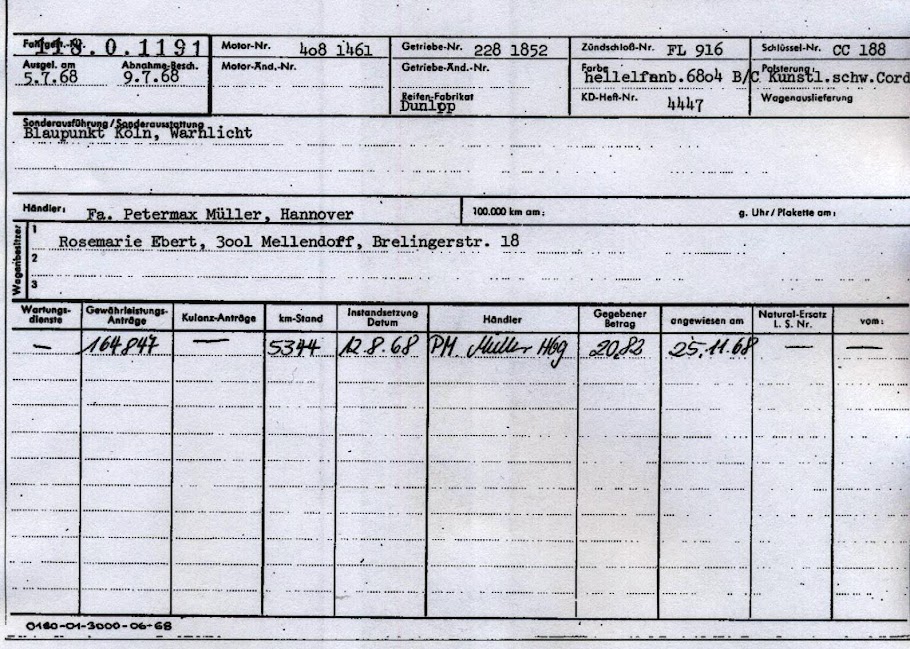 Fahrgest.-Nr. 118.0.1191 Motor-Nr. 408 1461 Getriebe-Nr. 228 1852 Zündschloß-Nr. FL 916 Schlüssel-Nr. CC 188
Ausgel. am 5.7.68 Abnahme-Besch. 9.7.68 Motor-Änd.-Nr. Getriebe-Änd.-Nr. Farbe hellelfenb.6804 B/C Polsterung: Kunstl.schw.Cord
Reifen-Fabrikat Dunlop KD-Heft-Nr. 4447 Wagenauslieferung
Sonderausführung/Sonderausstattung
Blaupunkt Köln, Warnlicht
Händler: Fa. Petermax Müller, Hannover 100.000 km am: g. Uhr/Plakette am:
Wagenbesitzer
1 Rosemarie Ebert, 3001 Mellendoff, Brelingerstr. 18
2
3
Wartungs-dienste Gewährleistungs-Anträge Kulanz-Anträge km-Stand Instandsetzung Datum Händler Gegebener Betrag angewiesen am Natural-Ersatz L. S. Nr. vom:
— 164847 — 5344 12.8.68 PM Müller Hbg 20,82 25.11.68 — —
0180-01-3000-06-68